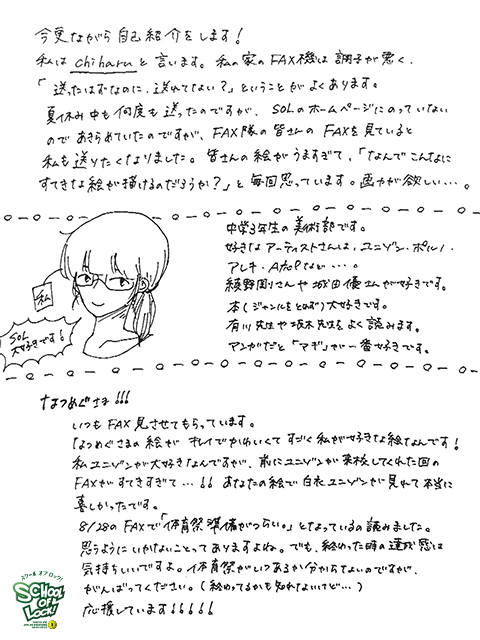 今更ながら自己紹介をします！
私はchiharuと言います。私の家のFAX機は調子が悪く、
「送ったはずなのに、送れてない？」ということがよくあります。
夏休み中も何度も送ったのですが、SOLのホームページにのっていない
のであきらめていたのですが、FAX隊の皆さんのFAXを見ていると
私も送りたくなりました。皆さんの絵がうますぎて、「なんでこんなに
すてきな絵が描けるのだろうか？」と毎回思っています。画力が欲しい…。
中学3年生の美術部です。
好きなアーティストさんは、ユニゾン・ポルノ・
アレキ・Aqua Pなど…。
綾野剛さんや城田優さんが好きです。
本（ジャンルをとわず）大好きです。
有川先生や坂木先生をよく読みます。
マンガだと「マギ」が一番好きです。
私
SOL
大好きです！
なつめぐさま！！！
いつもFAX見させてもらっています。
なつめぐさまの絵がキレイでかわいくてすごく私が好きな絵なんです！
私ユニゾンが大好きなんですが、前にユニゾンが来校してくれた回の
FAXがすてきすぎて…！！あなたの絵で白衣ユニゾンが見れて本当に
喜しかったです。
8/28のFAXで「体育祭準備がつらい。」となっているの読みました。
思うようにいかないことってありますよね。でも、終わった時の達成感は
気持ちいいですよ。体育祭がいつあるか分からないのですが、
がんばってください。（終わってるかも知れないけど…）
応援しています！！！！！
スクールオブロック！
SCHOOL
OF
LOCK!